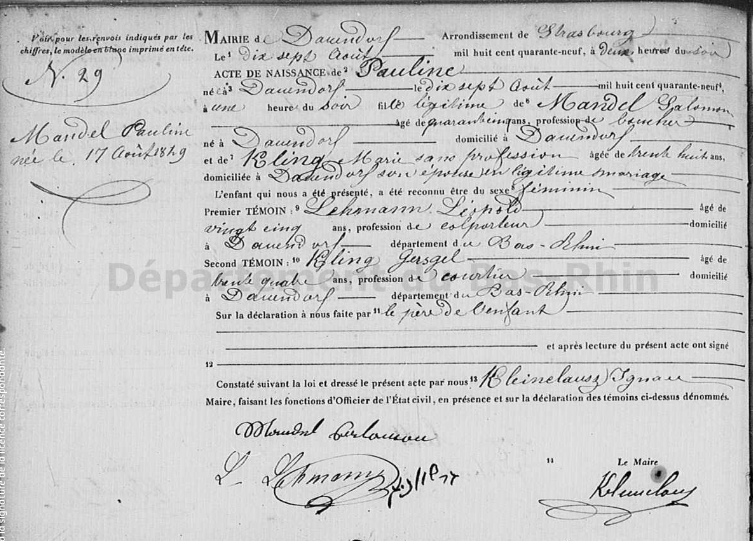 Voir, pour les renvois indiqués par les
chiffres, le modèle en blanc imprimé en tête.
N. 29
Mandel Pauline
née le 17 Août 1849
MAIRIE de Dauendorf Arrondissement de Strasbourg
Le 1 dix sept Août mil huit cent quarante-neuf, à deux heures du soir
ACTE DE NAISSANCE de 2 Pauline
née à 3 Dauendorf le dix sept Août mil huit cent quarante-neuf,
à une heure du soir fille légitime de 6 Mandel Salomon
âgé de quarante cinq ans, profession de boucher
né à Dauendorf domicilié à Dauendorf
et de 7 Kling Marie sans profession âgée de trente huit ans,
domiciliée à Dauendorf son épouse en légitime mariage
L'enfant qui nous a été présenté, a été reconnu être du sexe 8 féminin
Premier TÉMOIN : 9 Lehmann Léopold âgé de
vingt cinq ans, profession de colporteur domicilié
à Dauendorf département du Bas-Rhin
Second TÉMOIN : 10 Kling Jersgel âgé de
trente quatre ans, profession de courtier domicilié
à Dauendorf département du Bas-Rhin
Département du Bas-Rhin
Sur la déclaration à nous faite par 11 le père de l'enfant
et après lecture du présent acte ont signé
12
Constaté suivant la loi et dressé le présent acte par nous 13 Kleinclausz Ignace
Maire, faisant les fonctions d'Officier de l'État civil, en présence et sur la déclaration des témoins ci-dessus dénommés.
Mandel
L. Lehmann
14 Le Maire
Kleinclausz
à la signature de la licence correspondante.